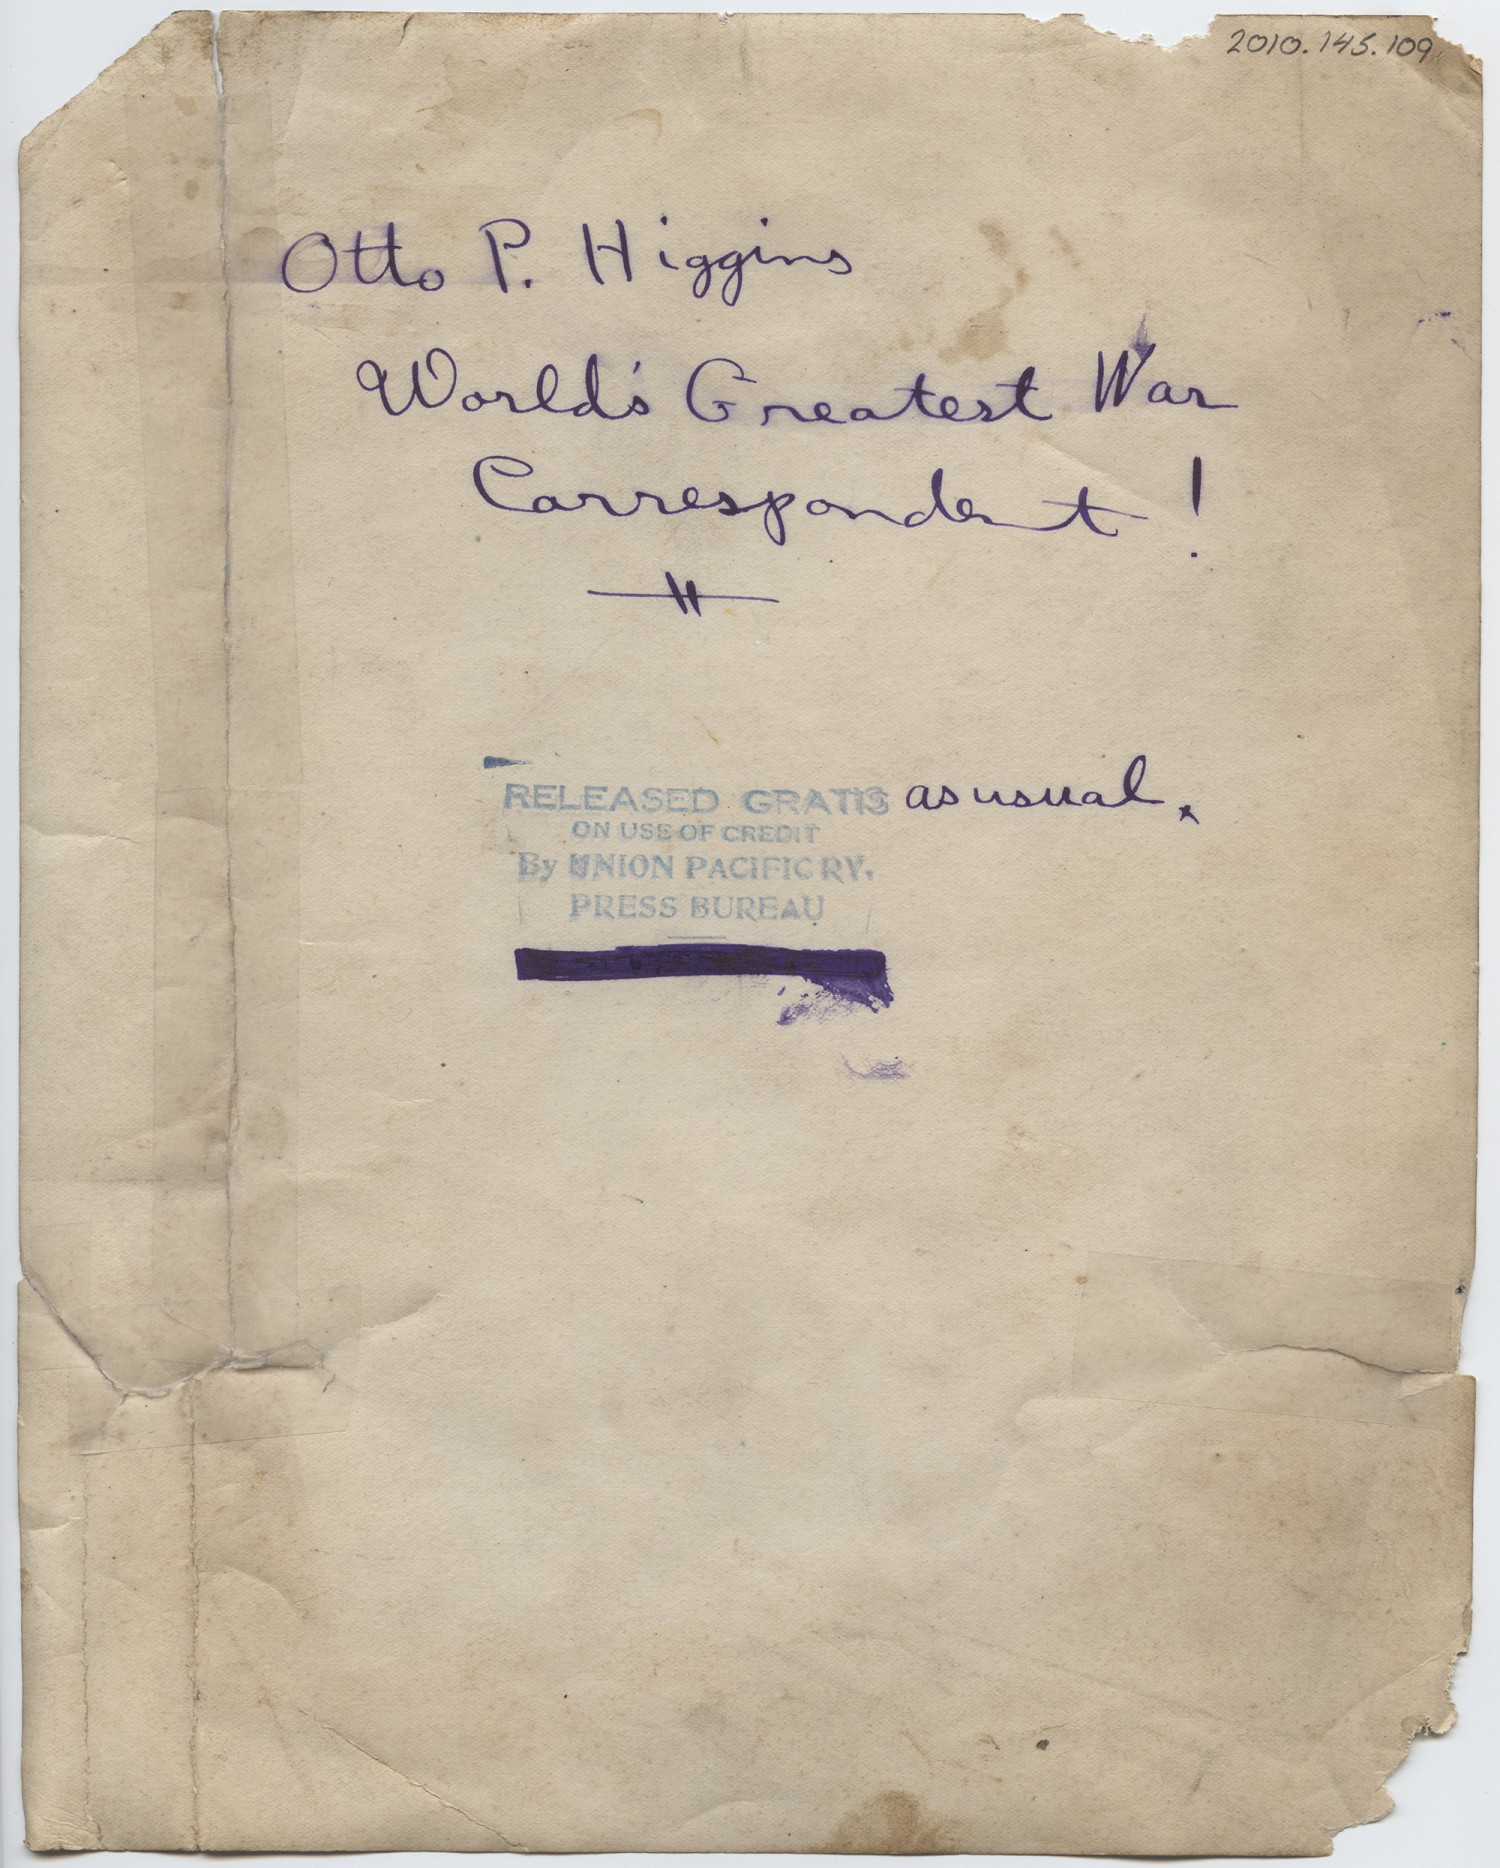 2010.145.109
Otto P. Higgins
World's Greatest War
Correspondent!
RELEASED GRATIS as usual.
ON USE OF CREDIT
By UNION PACIFIC RY.
PRESS BUREAU